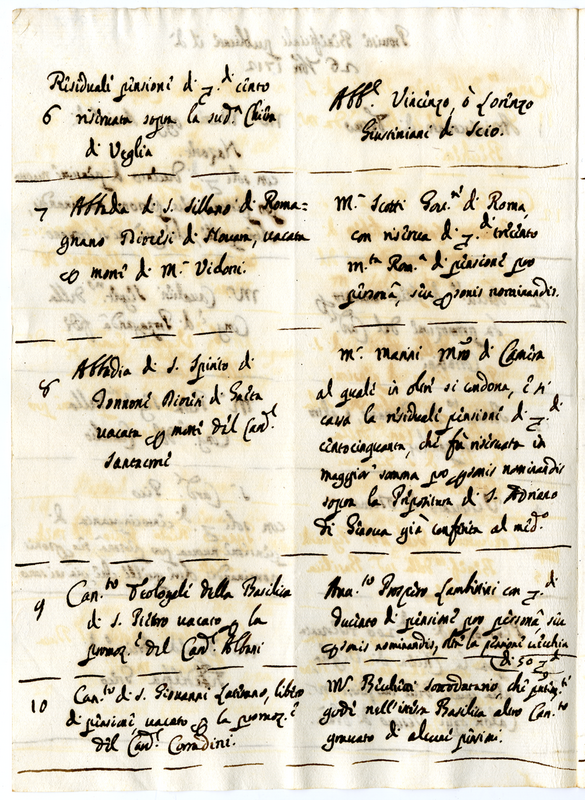 Residuali pensioni di z.di cento
6 riservata sopra la sud.a Chiesa
di Veglia
Abb.e Vincenzo, ò Lorenzo
Giustiniani di Scio.
7 Abbadia di S. Sillano di Roma=
gnano Diocesi di Novara, vacata
p morte di M.r Vidoni.
M.r Scotti Gov.re di Roma,
con riserva di z.di trecento
m.ta Rom.a di pensione pro
persona, seu personis nominandis.
8 Abbadia di S. Spirito di
Diocesi di Gaeta
vacata p morte del Card.l
Santacroce
M.r Marini Mro di Camera
al quale in oltre si condona, e si
cassa la residuale pensione di z.di
centocinquanta, che fu riservata in
maggior somma pro personis nominandis
sopra la Prepositura di S. Adriano
di Genova già conferita al med.o
9 Can.to Teologale della Basilica
di S. Pietro vacato p la
promoz.e del Card.l Albani
Prospero Lambertini con z.di
ducento di pensione pro persona, seu
personis nominandis, oltre la pensione vecchia
di 50 z.di
10 Can.to di S. Giovanni Laterano, libero
di pensione, vacato p la promoz.e
del Card.l Corradini.
M.r Bicchieri sottodatario, che
gode nell'istessa Basilica altro Can.to
gravato di alcune pensioni.